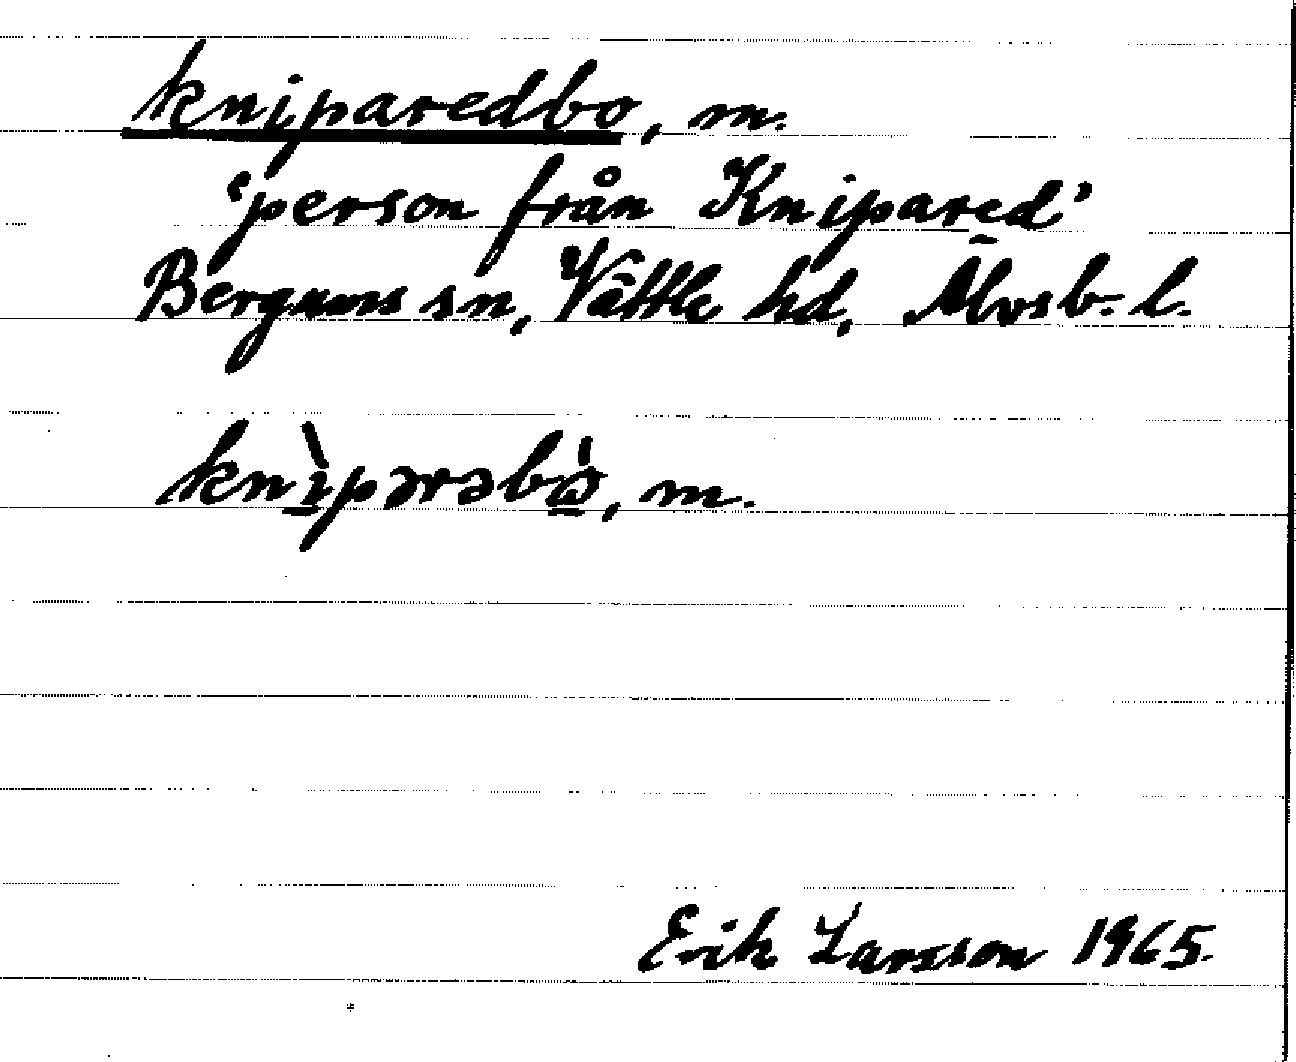 kniparedbo, m.
'person från Knipared'
Bergums sn, Vättle hd, Älvsb. l.
knìpərəbò̤, m.
Erik Larsson 1965.